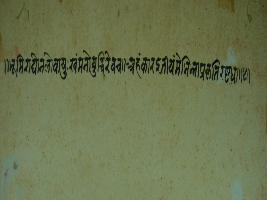 ॥भूमिरापोनलोवायुः खंमनोबुद्धिरेवच॥अहंकारइतीयंमेभिन्नाप्रकृतिरष्टधा॥४॥